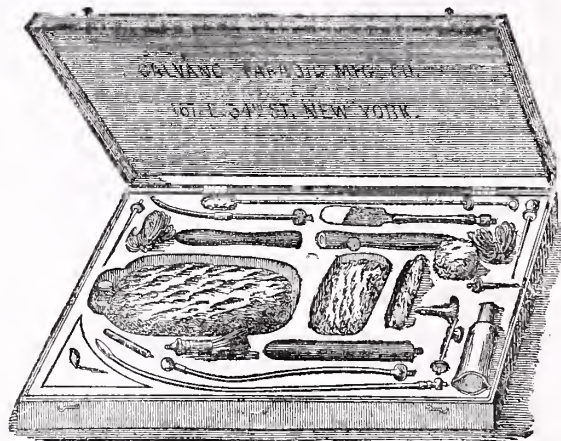 GALVANO FARADIC MFG. CO.
167 E. 34TH ST. NEW YORK.